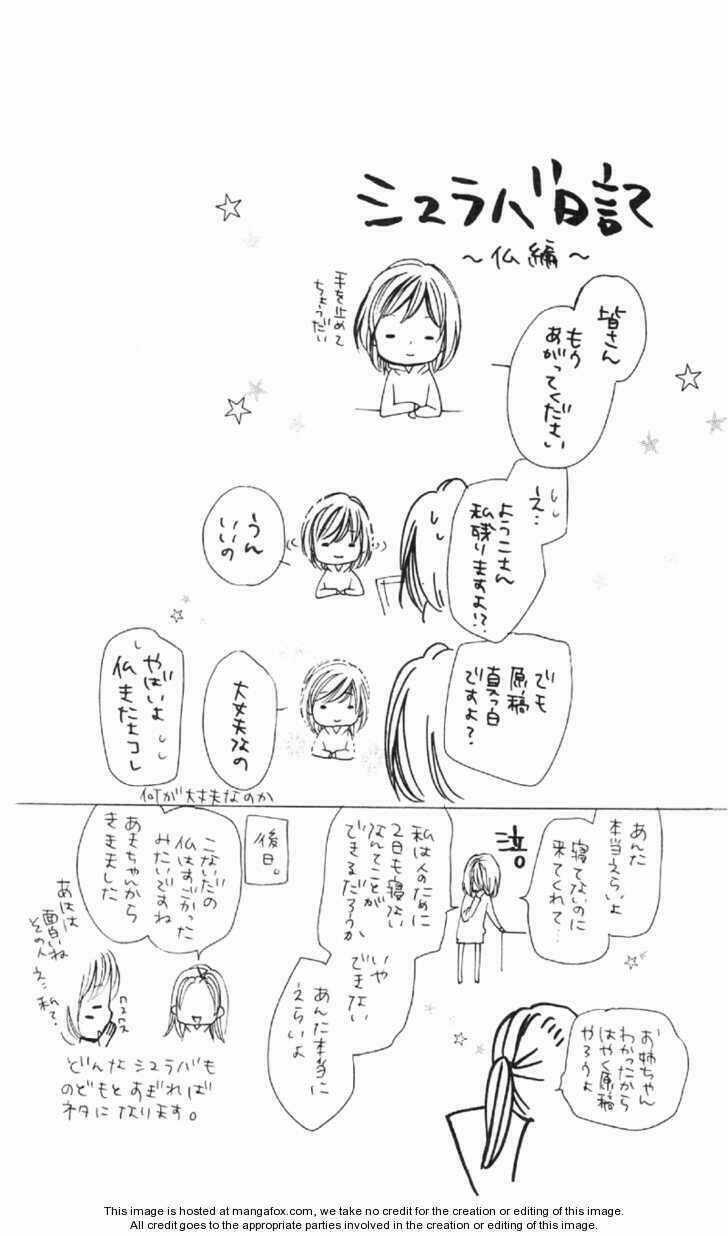 シュラバ日記
〜仏編〜
皆さん
もう
あがってください
手を止めて
ちょうだい
え…
ようこさん
私残りますよ!?
うん
いいの
でも
原稿
真っ白
ですよ?
大丈夫なの
やばいよ
仏きたなコレ
何が大丈夫なのか
あんた
本当えらいよ
寝てないのに
来てくれて…
泣。
お姉ちゃん
わかったから
はやく原稿
やろうよ
私は人のために
2日も寝ない
なんてことが
できるだろうか
いや
できない
あんた本当に
えらいよ
後日。
こないだの
仏はすごかった
みたいですね
あきちゃんから
ききました
あはは
面白いね
その人
え…私?
クスクス
どんなシュラバも
のどもとすぎれば
ネタになります。
This image is hosted at mangafox.com, we take no credit for the creation or editing of this image.
All credit goes to the appropriate parties involved in the creation or editing of this image.